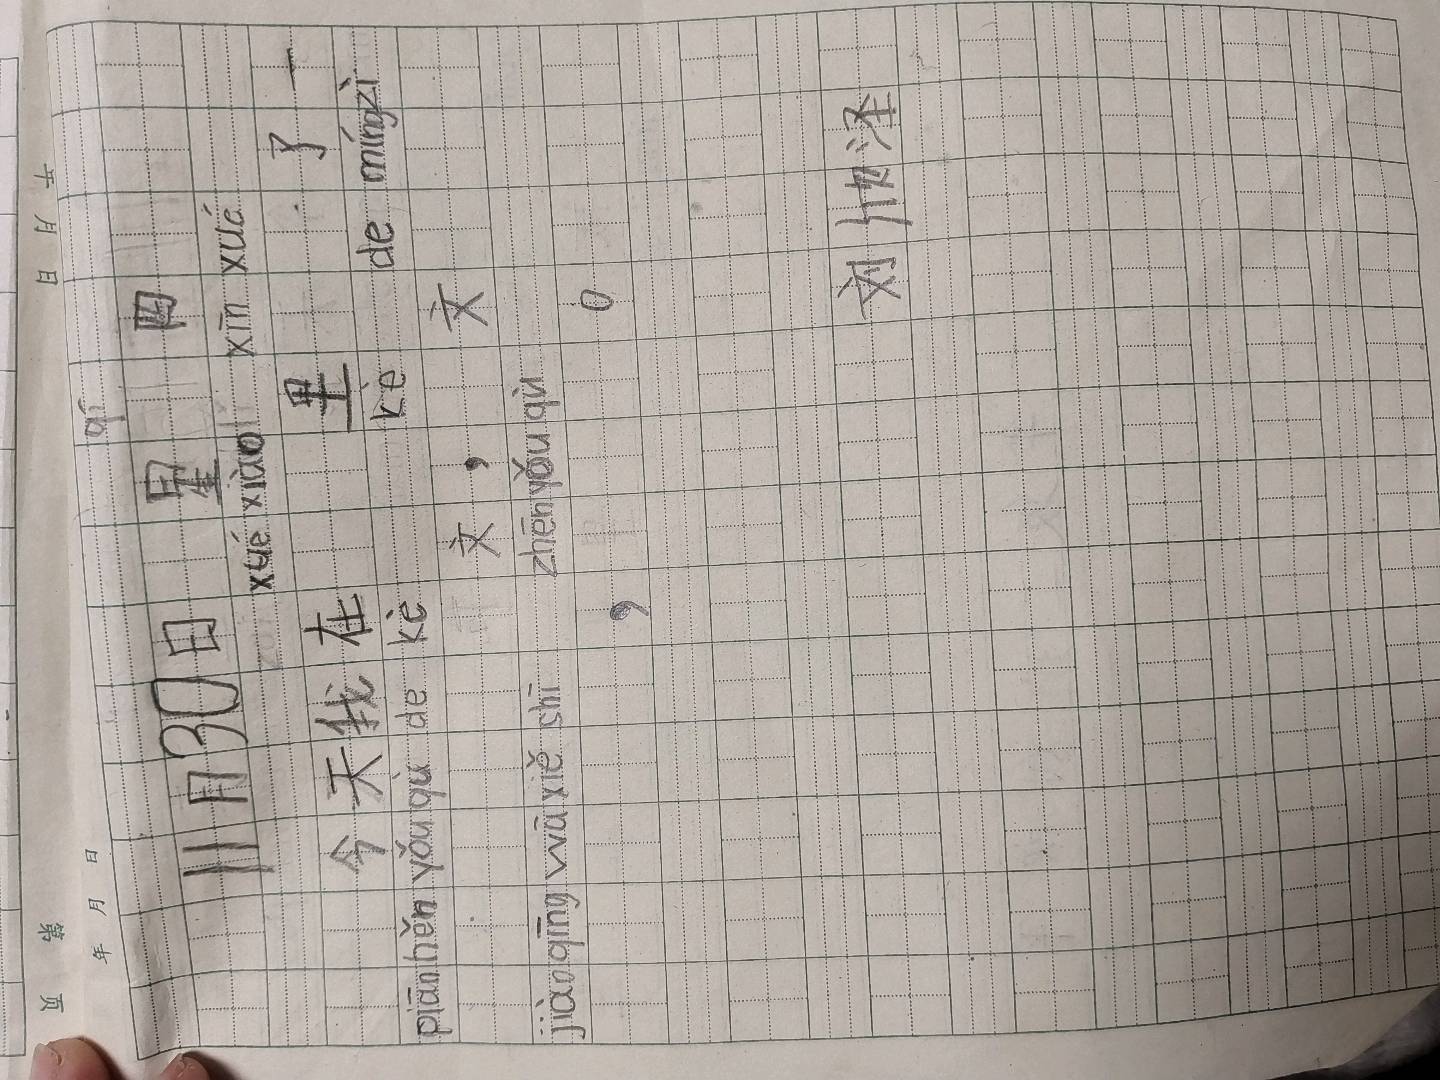 第 页 年 月 日
年 月 日
qī
11月30日 星 四
xué xiào xīn xué
今天我在 里 了一
piān hěn yǒu qù de kè kè de míngzì
文， 文
jiào qīng wā xiě shī zhēn yǒu qù
， 。
刘 泽